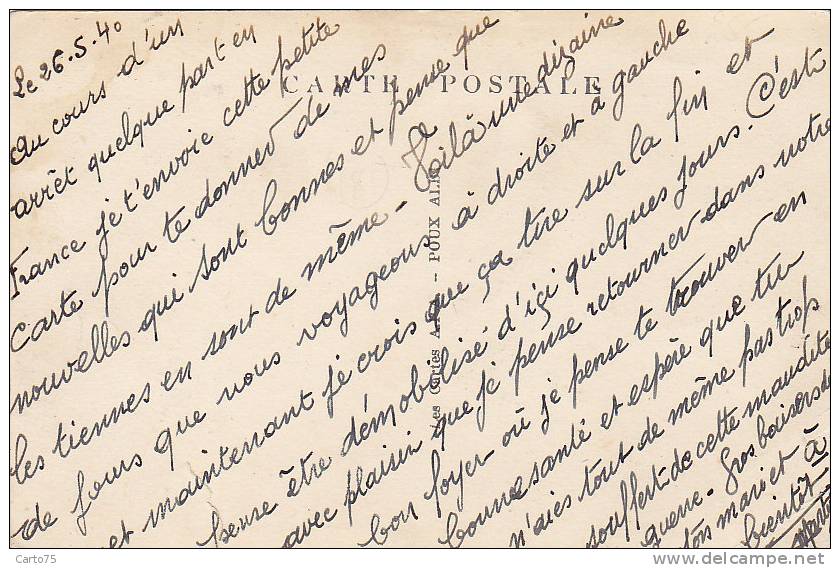 Le 26-5-40
Au cours d'un
arrêt quelque part en
France je t'envoie cette petite
Carte pour te donner de mes
nouvelles qui sont bonnes et pense que
les tiennes en sont de même - Voilà une dizaine
de jours que nous voyageons à droite et à gauche
et maintenant je crois que ça tire sur la fin et
pense être démobilisé d'içi quelques jours. C'est
avec plaisir que je pense retourner dans notre
bon foyer où je pense te trouver en
bonne santé et espère que tu
n'aies tout de même pas trop
souffert de cette maudite
guerre - Gros baisers de
ton mari et à
bientôt
CARTE POSTALE
POUX ALBI
Carto75
delcampe.net